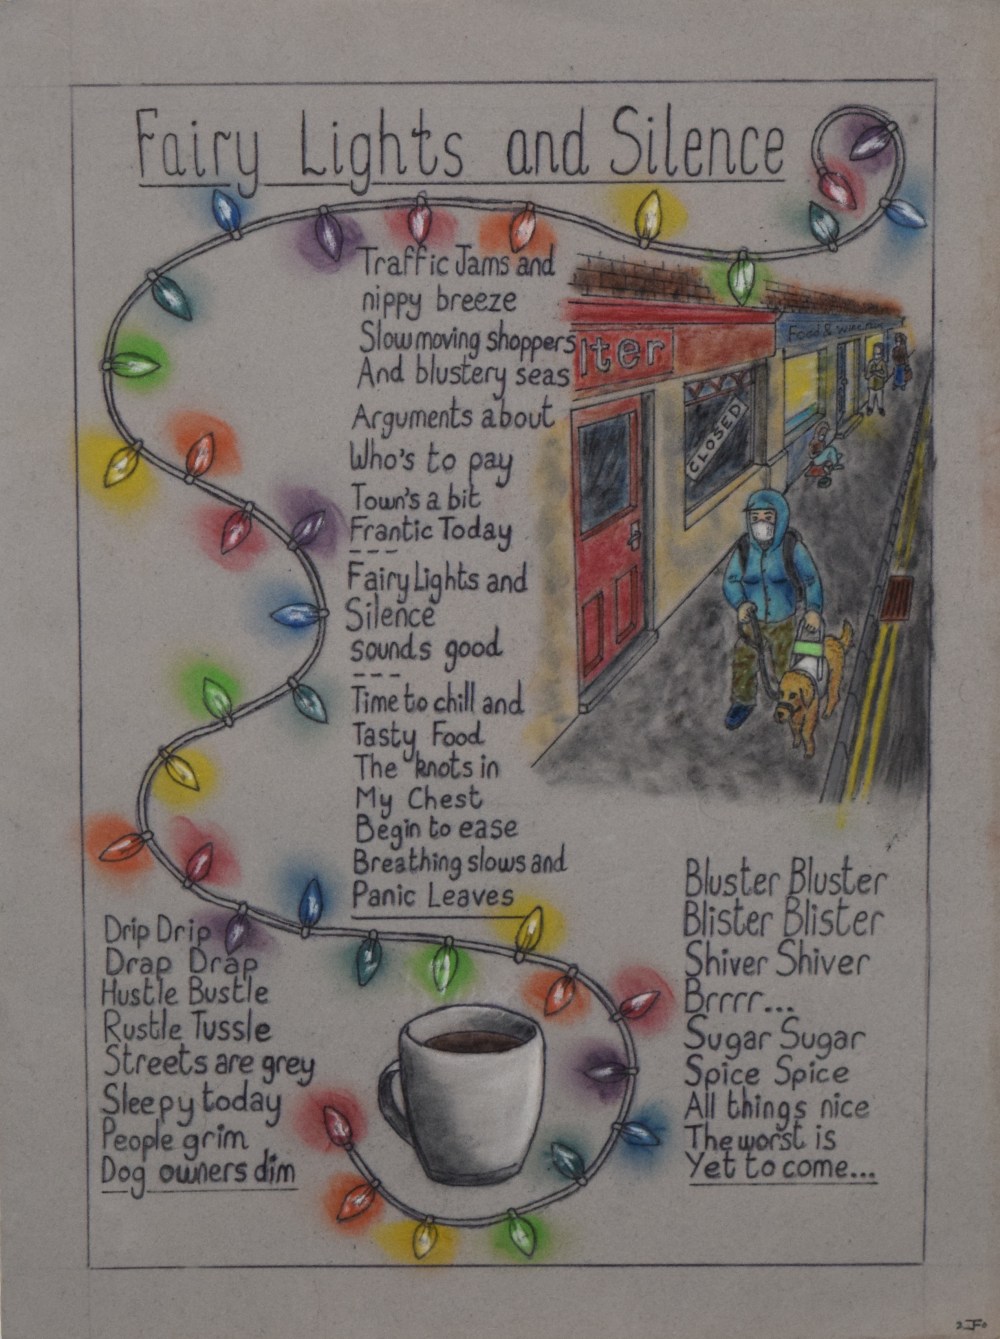 Fairy Lights and Silence
Traffic Jams and
nippy breeze
Slow moving shoppers
And blustery seas
Arguments about
Who's to pay
Town's a bit
Frantic Today
---
Fairy Lights and
Silence
sounds good
---
Time to chill and
Tasty Food
The knots in
My Chest
Begin to ease
Breathing slows and
Panic Leaves
lter
Food &
CLOSED
Drip Drip
Drap Drap
Hustle Bustle
Rustle Tussle
Streets are grey
Sleepy today
People grim
Dog owners dim
Bluster Bluster
Blister Blister
Shiver Shiver
Brrrr...
Sugar Sugar
Spice Spice
All things nice
The worst is
Yet to come...